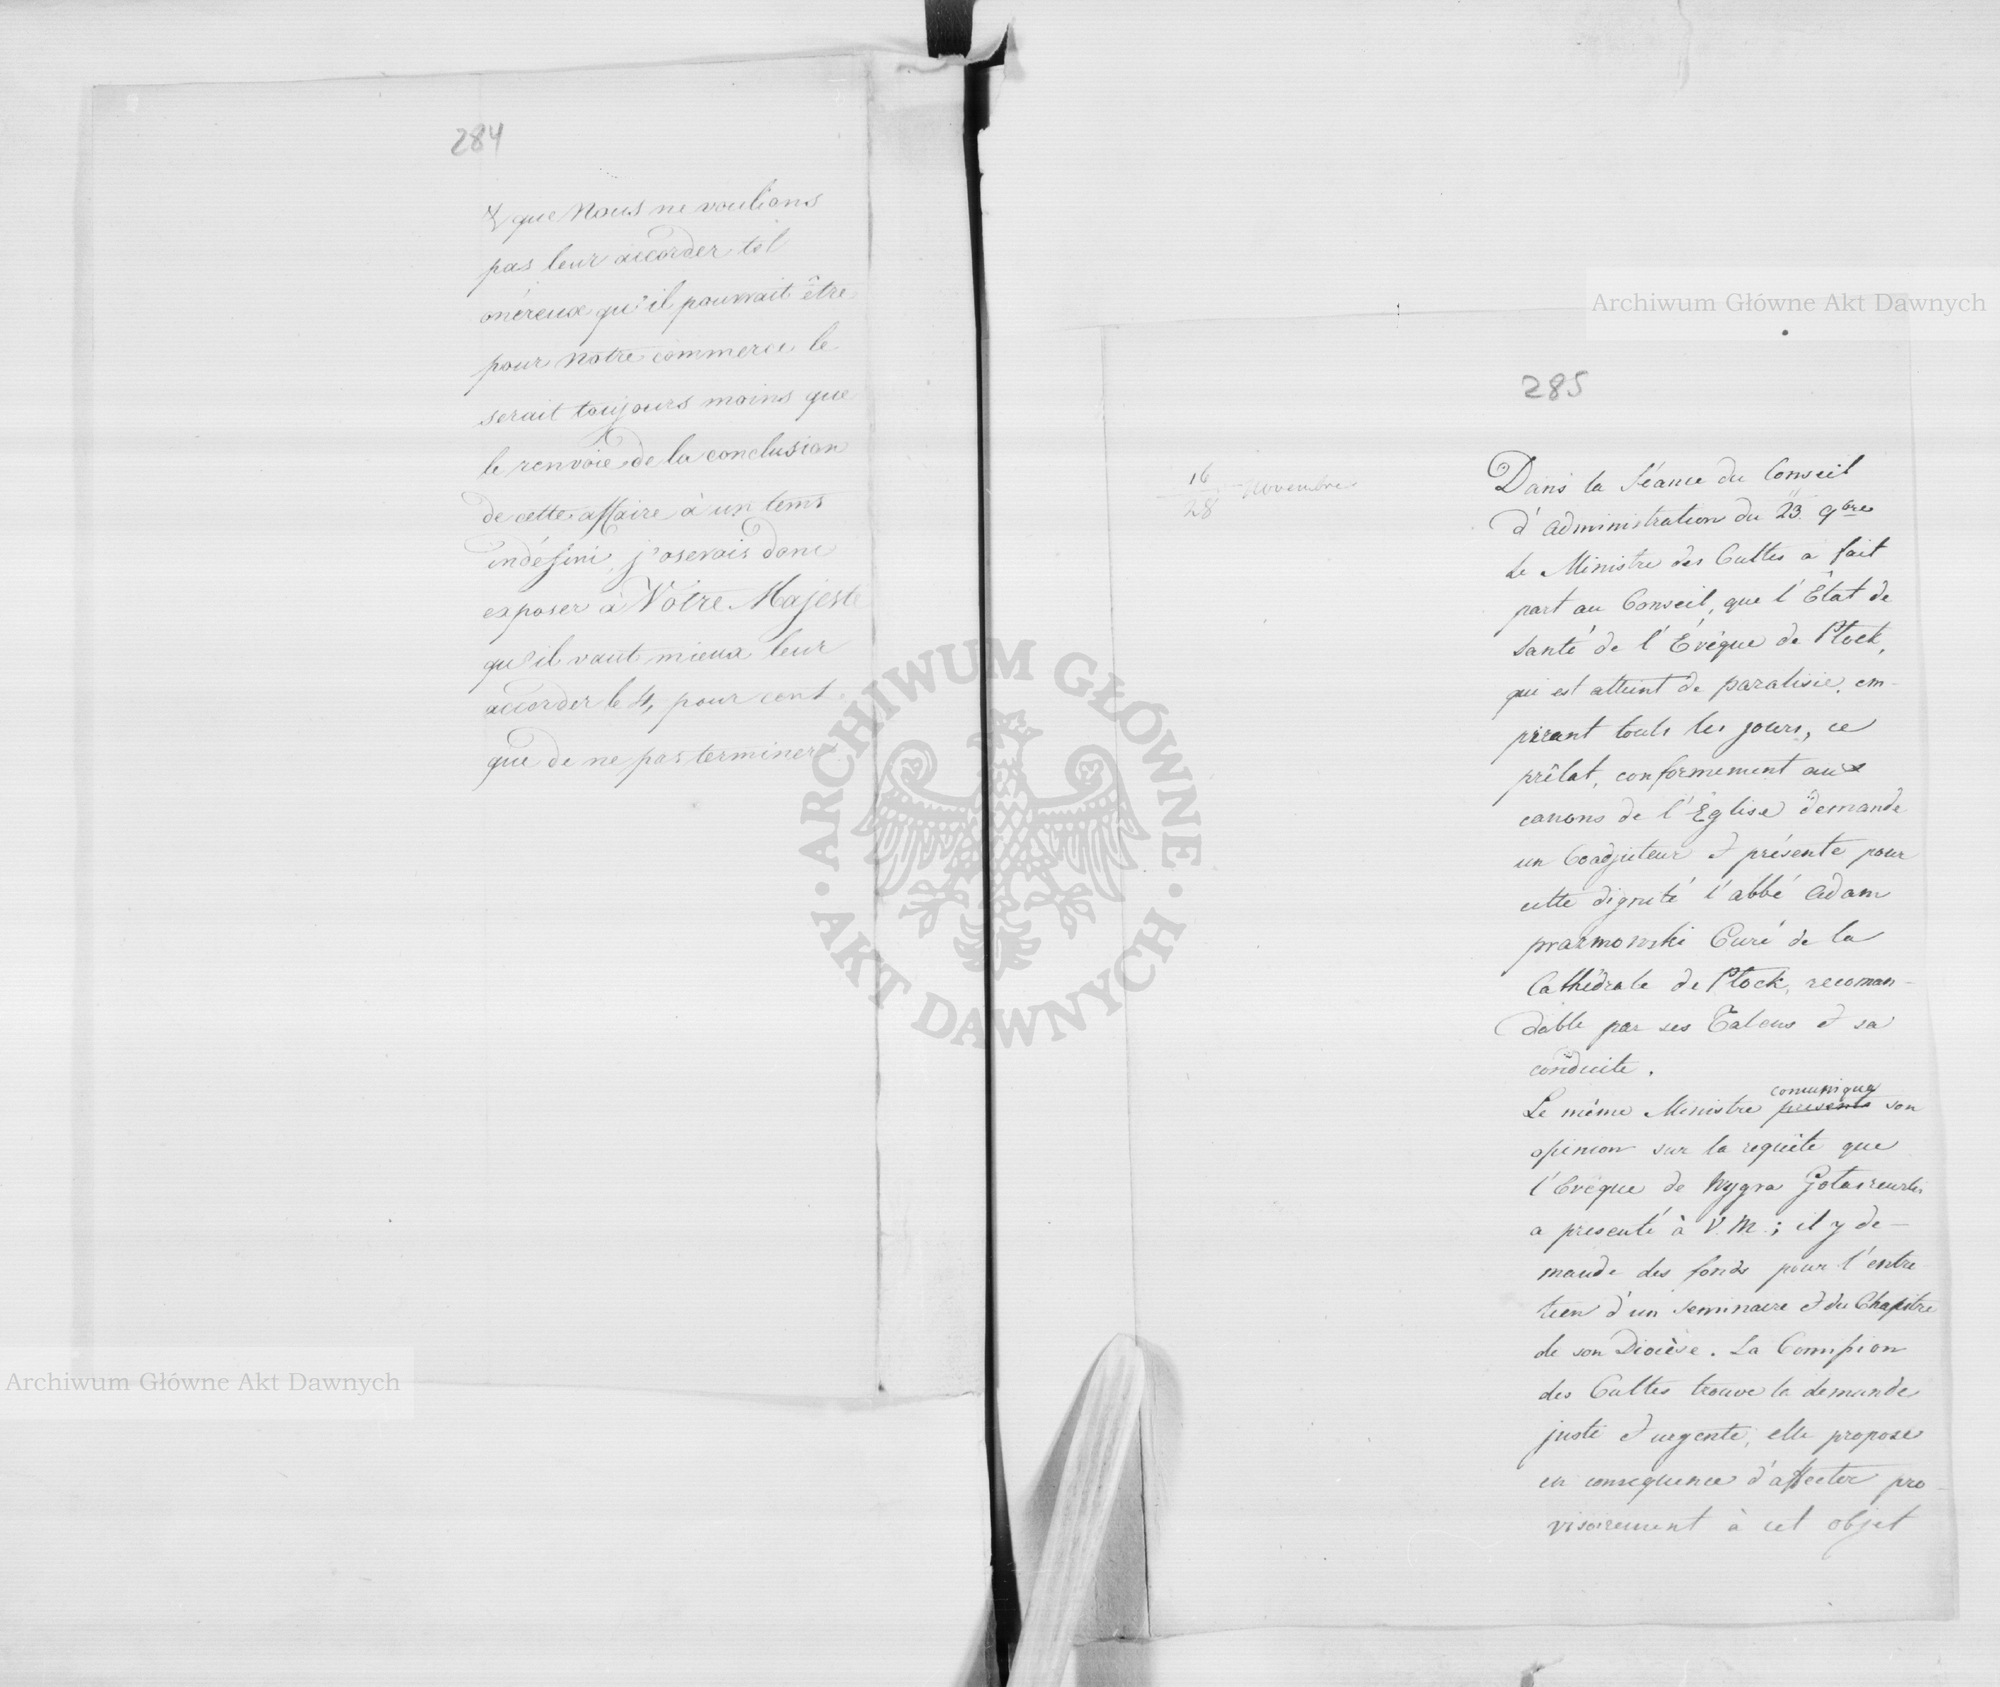 284
& que Nous ne voulions
pas leur accorder tel
onéreux qu'il pourrait être
pour Notre commerce le
serait toujours moins que
le renvoie de la conclusion
de cette affaire à un tems
indéfini, j'oserois donc
exposer à Votre Majesté
qu'il vaut mieux leur
accorder le 4, pour cent
que de ne pas terminer
Archiwum Główne Akt Dawnych
285
16
28 Novembre
Dans la Séance du Conseil
d'administration du 23. 9bre
le Ministre des Cultes a fait
part au Conseil, que l'État de
santé de l'Évêque de Plock,
qui est atteint de paralisie, em-
pirant touts les jours, ce
prêlat, conformement aux
canons de l'Église demande
un Coadjuteur & présente pour
cette dignité l'abbé Adam
prazmowski Curé de la
Cathédrale de Plock, recoman-
dable par ses Talens & sa
conduite.
Le même Ministre presenta comuniqua son
opinion sur la requête que
l'Evêque de Wygra
a presenté à V. M.; il y de-
mande des fonds pour l'entre
tien d'un seminaire & du Chapitre
de son Diocèse. La Comission
des Cultes trouve la demande
juste & urgente, elle propose
en consequence d'affecter pro-
visoirement à cet objet
ARCHIWUM GŁÓWNE AKT DAWNYCH
Archiwum Główne Akt Dawnych